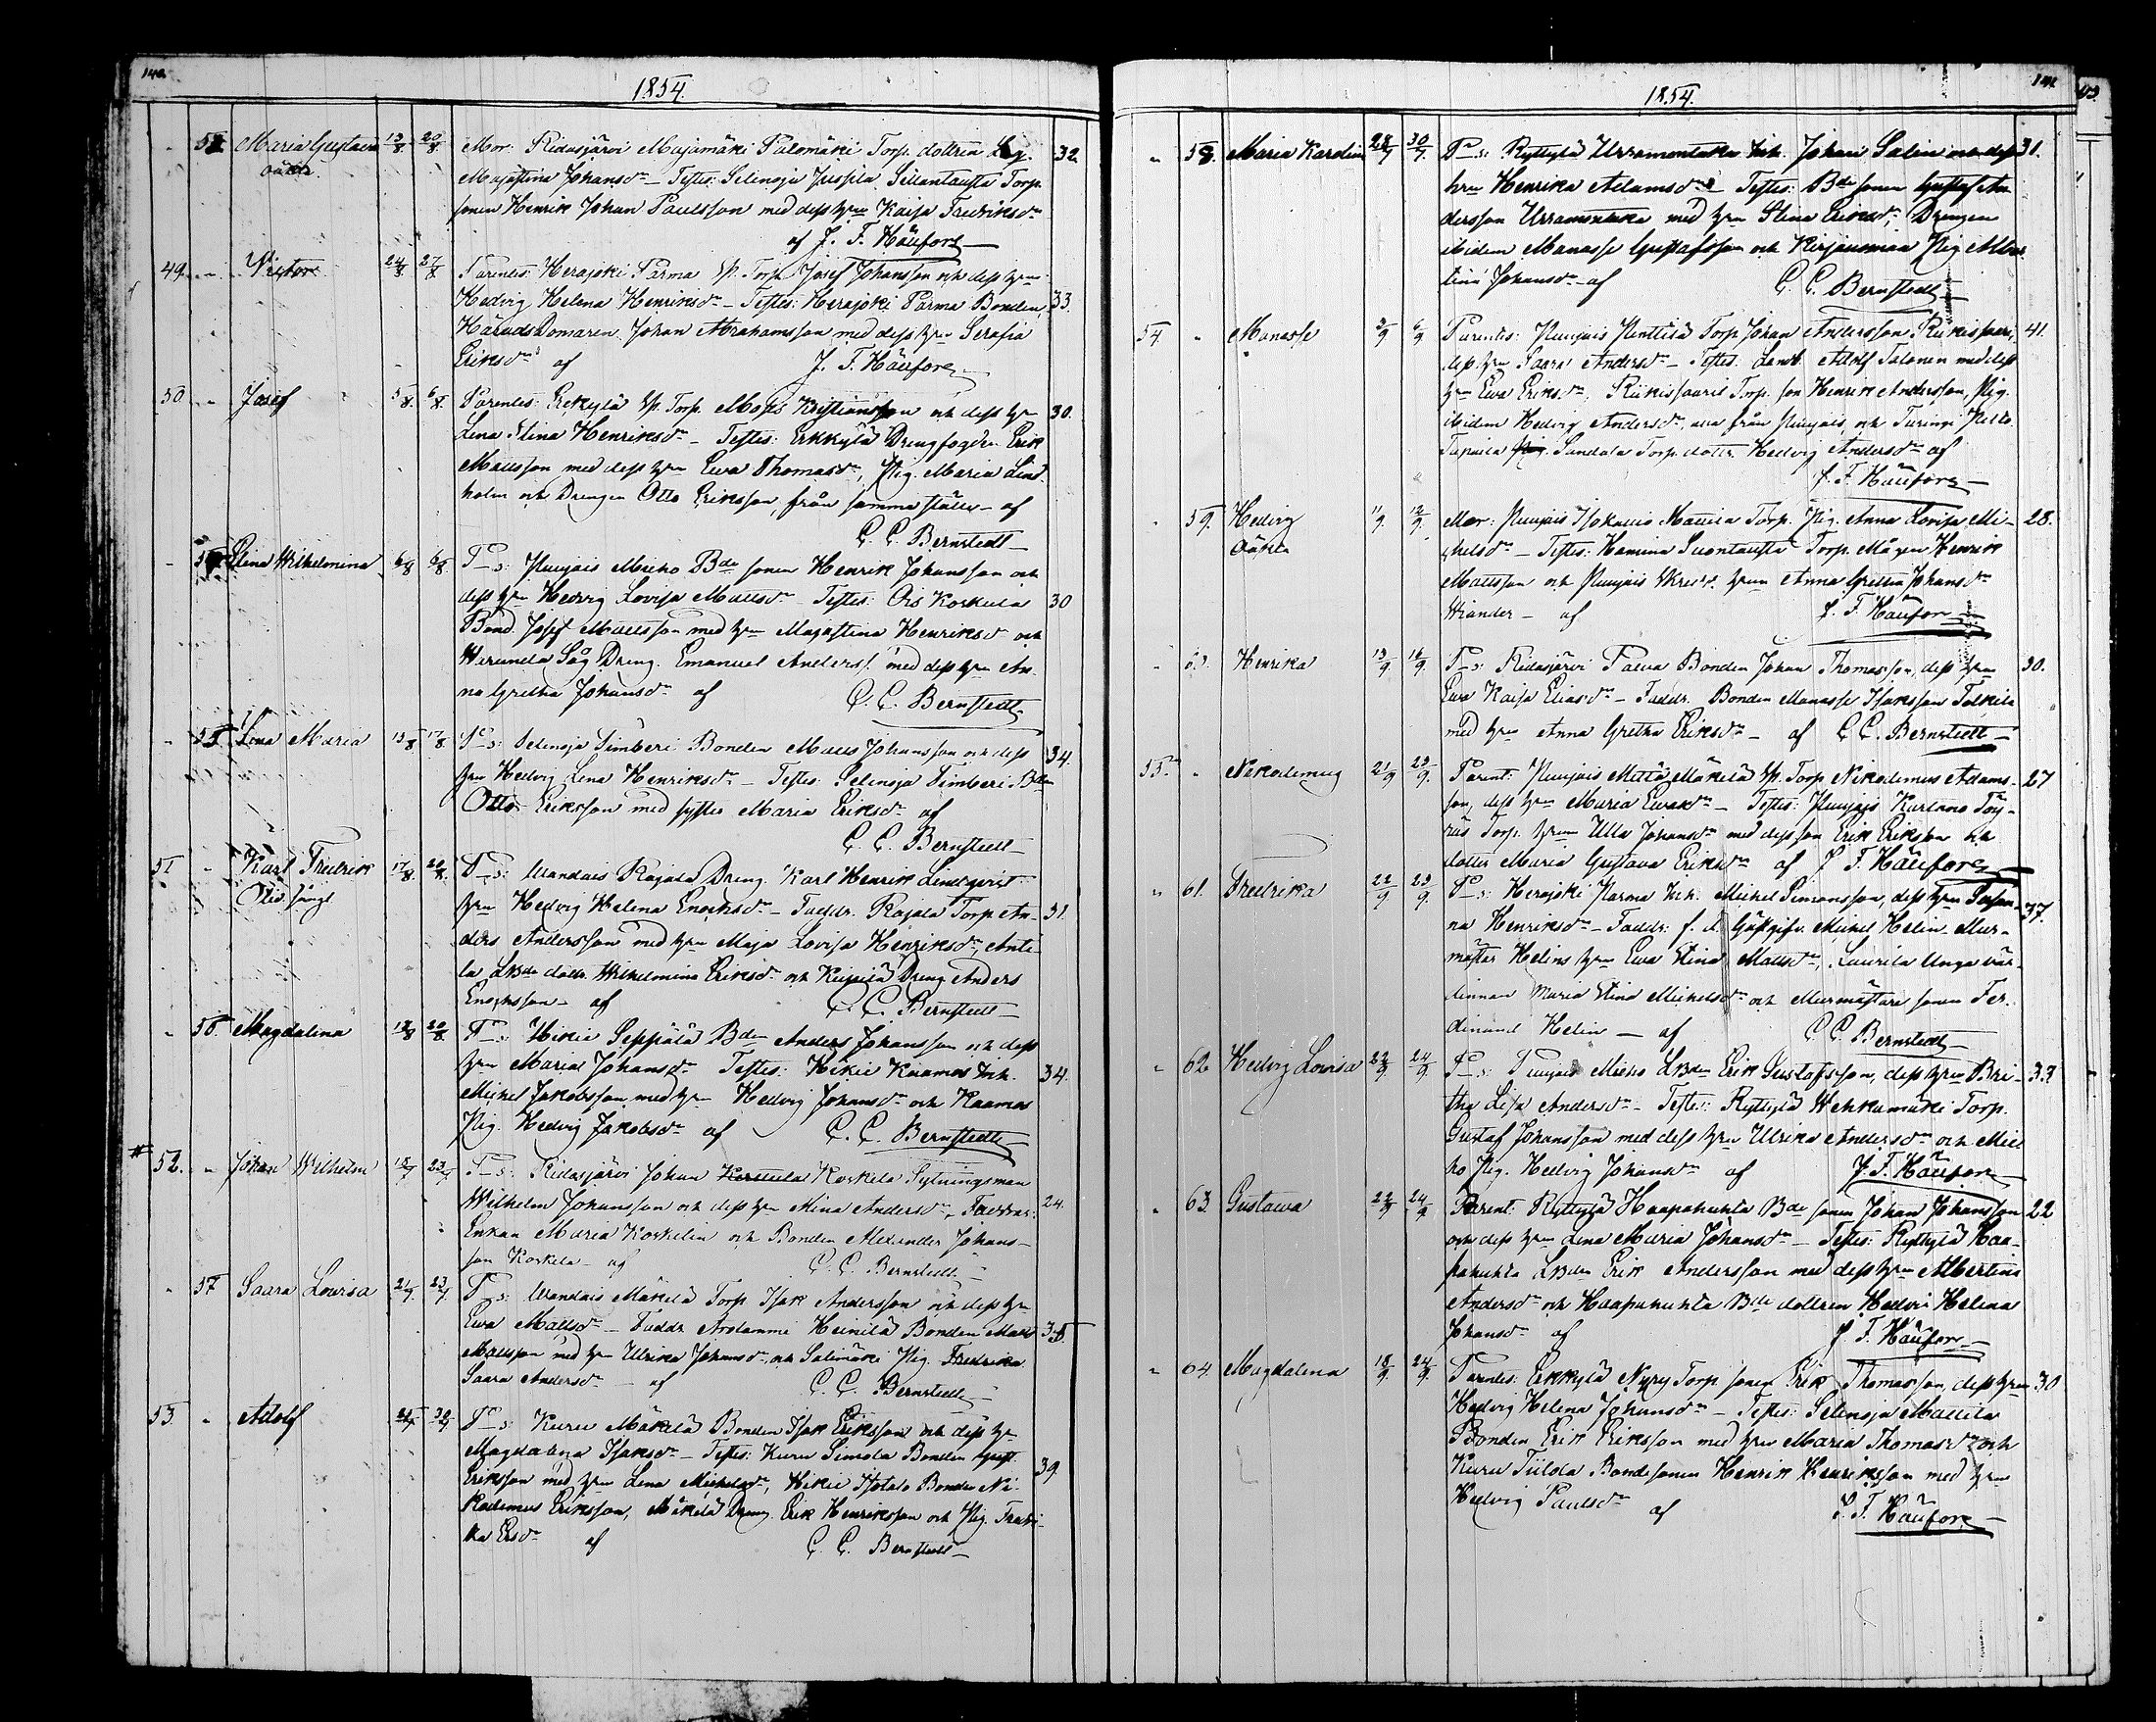 140.
1854.
Maria Gustava 13/8 20/8 Mor: Ridasjärvi Majamäki Palomäki Torp. dottren 32.
oäkta Majastina Johansdr Testes: Selensoja Torp.
sonen Henrik Johan Paulsson med dess hru Kaisa Fredriksdr
af J. F. Häufors
49. Victor 24/8 27/8 Parentes: Herajoki Parma Sp. Torp. Josef Johansson och dess hru
Hedvig Helena Henriksdr Testes: Herajoki Parma Bonden, 33.
Härads Domaren Johan Abrahamsson med dess hru Serafia
Eriksdr af J. F. Häufors
50 Josef 5/8. 6/8. Parentes: Erkkylä Sp. Torp. Mats Kristiansson och dess hru 30.
Lena Stina Henriksdr Testes: Erkkylä Drengfogden Erik
Mattsson med dess hru Ewa Thomasdr, Pig. Maria Lind
holm och Drengen Otto Eriksson, från samma ställe af
C. C. Bernstedt
Stina Wilhelmina 6/8 6/8. P-s: Nuujais Mieho Bde sonen Henrik Johansson och
dess hru Hedvig Lovisa Mattsdr Testes: Ois Koskula 30
Bond. Josef Mattsson med hru Majastina Henriksdr och
Wirunda Såg Dreng. Emanuel Anders. med dess hru An
na Gretha Johansdr af C. C. Bernstedt
55 Lena Maria 13/8 17/8. P-s: Selensoja Timberi Bonden Matts Johansson och dess 34.
hru Hedvig Lena Henriksdr Testes: Selensoja Timberi Bden
Otto Eriksson med syster Maria Eriksdr af
C. C. Bernstedt
51 Karl Fredrik 17/8. 20/8. P-s: Wandais Rajala Dreng. Karl Henrik Lindqvist
hru Hedvig Helena Enocksdr Faddr. Rajala Torp. An- 31.
ders Andersson med hru Maja Lovisa Henriksdr, Anti
la LBde dottr. Wilhelmina Eriksdr och Kupiila Dreng Anders
Enocksson af C. C. Bernstedt
56. Magdalena 19/8 20/8. P-s: Hikiä Seppälä Bden Anders Johansson och dess
hru Maria Johansdr Testes: Hikiä Kaamos Inh. 34.
Michel Jakobsson med hru Hedvig Johansdr och Kaamos
Pig. Hedvig Jakobsdr af C. C. Bernstedt
# 52. Johan Wilhelm 18/7 23/7 P-s: Ridasjärvi Johan Koskela Sytningsman
Wilhelm Johansson och dess hru Mina Andersdr, Faddrar: 24.
Enkan Maria Koskelin och Bonden Alexander Johans-
son Koskela af C. C. Bernstedt
57 Saara Lovisa 21/7. 23/7 P-s: Wandais Mäkelä Torp. Isak Andersson och dess hru
Ewa Mattsdr Faddr. Arolammi Heinilä Bonden Matts 35.
Mattsson med hru Ulrika Johansdr, och Salimäki Pig. Fredrika
Saara Andersdr af C. C. Bernstedt
53. Adolf 25/7 30/7 P-s: Kuru Mäkelä Bonden Isak Eriksson och dess hru
Magdalena Isaksdr Testes: Kuru Simola Bonden Gust. 39
Eriksson med hru Lena Michelsdr, Hikiä Isotalo Bonden Ni-
kodemus Eriksson, Mäkelä Dreng. Erik Henriksson och Pig. Fredri-
ka Ersdr af C. C. Bernstedt
141.
1854.
58. Maria Karolin 28/7 30/7. P-s: Ryttylä Urramontaka Inh. Johan Salin och dess 31.
hru Henrika Adamsdr Testes: Bde sonen Gustaf An
dersson Urramontaka med hru Stina Eriksdr, Drengen
ibidem Manasse Gustafsson och Pig Alber
tina Johansdr af C. C. Bernstedt
54. Manasse 3/9 6/9 Parentes: Nuujais Penttilä Torp. Johan Andersson Riikissaari, 41.
dess hru Saara Andersdr Testes. Landb. Adolf Talonen med dess
hru Ewa Eriksdr, Riikissaaris Torp. son Henrik Andersson, Pig.
ibidem Hedvig Andersdr, alla från Nuujais, och
Sandala Torp. dottr. Hedvig Andersdr af
J. F. Häufors
59. Hedvig 11/9. 12/9. Mor: Nuujais Isokauis Mattila Torp. Pig. Anna Lovisa Mi- 28.
oäkta chelsdr Testes: Hamina Suontausta Torp. Mågen Henrik
Mattsson och Nuujais hrun Anna Gretha Johansdr
Wiander af J. F. Häufors
Henrika 13/9. 16/9. P-s: Ridasjärvi Paeva Bonden Johan Thomasson, dess hru 30.
Ewa Kaisa Eliasdr Faddr. Bonden Manasse Isaksson Tolkila
med hru Anna Gretha Eriksdr af C. C. Bernstedt
55. Nikodemus 21/9 23/9. Parent: Nuujais Mattä Mäkelä Sp. Torp. Nikodemus Adams- 27
son, dess hru Maria Ewasdr Testes: Nuujais Karlano Töy-
räs Torp. hrun Ulla Johansdr med dess son Erik Eriksson och
dotter Maria Gustava Eriksdr af J. F. Häufors
61. Fredrika 22/9 23/9. P-s: Herajoki Parma Inh. Michel Simonsson, dess hru Susan-
na Henriksdr Faddr: f. d. Gästgifv. Michel Helin, Mur- 37.
mästar Helins hru Ewa Stina Mattsdr, Laurila Unga vär-
dinnan Maria Stina Michelsdr och Murmästare sonen Fer-
dinand Helin af C. C. Bernstedt
62 Hedvig Lovisa 22/9 24/9. P-s: Nuujais Mieho LBden Erik Gustafsson, dess hru Bri- 33
tha Lisa Andersdr Testes: Ryttylä Wehkamäki Torp.
Gustaf Johansson med dess hru Ulrika Andersdr och Mie
ho Pig. Hedvig Johansdr af J. F. Häufors
63. Gustawa 22/9 24/9 Parent: Ryttylä Haapahuhta Bde sonen Johan Johansson 22
och dess hru Lena Maria Johansdr Testes: Ryttylä Haa-
pahuhta LBden Erik Andersson med dess hru Albertina
Andersdr och Haapahuhta Bde dottren Hedvi Helena
Johansdr af J. F. Häufors
64. Magdalena 18/9. 24/9. Parentes: Erkkylä Nyry Torp. sonen Erik Thomasson, dess hru 30
Hedvig Helena Johansdr Testes: Selensoja Mattila
Bonden Erik Eriksson med hru Maria Thomasdr och
Kuru Tiilda Bondesonen Henrik Henriksson med hru
Hedvig Paulsdr af J. F. Häufors